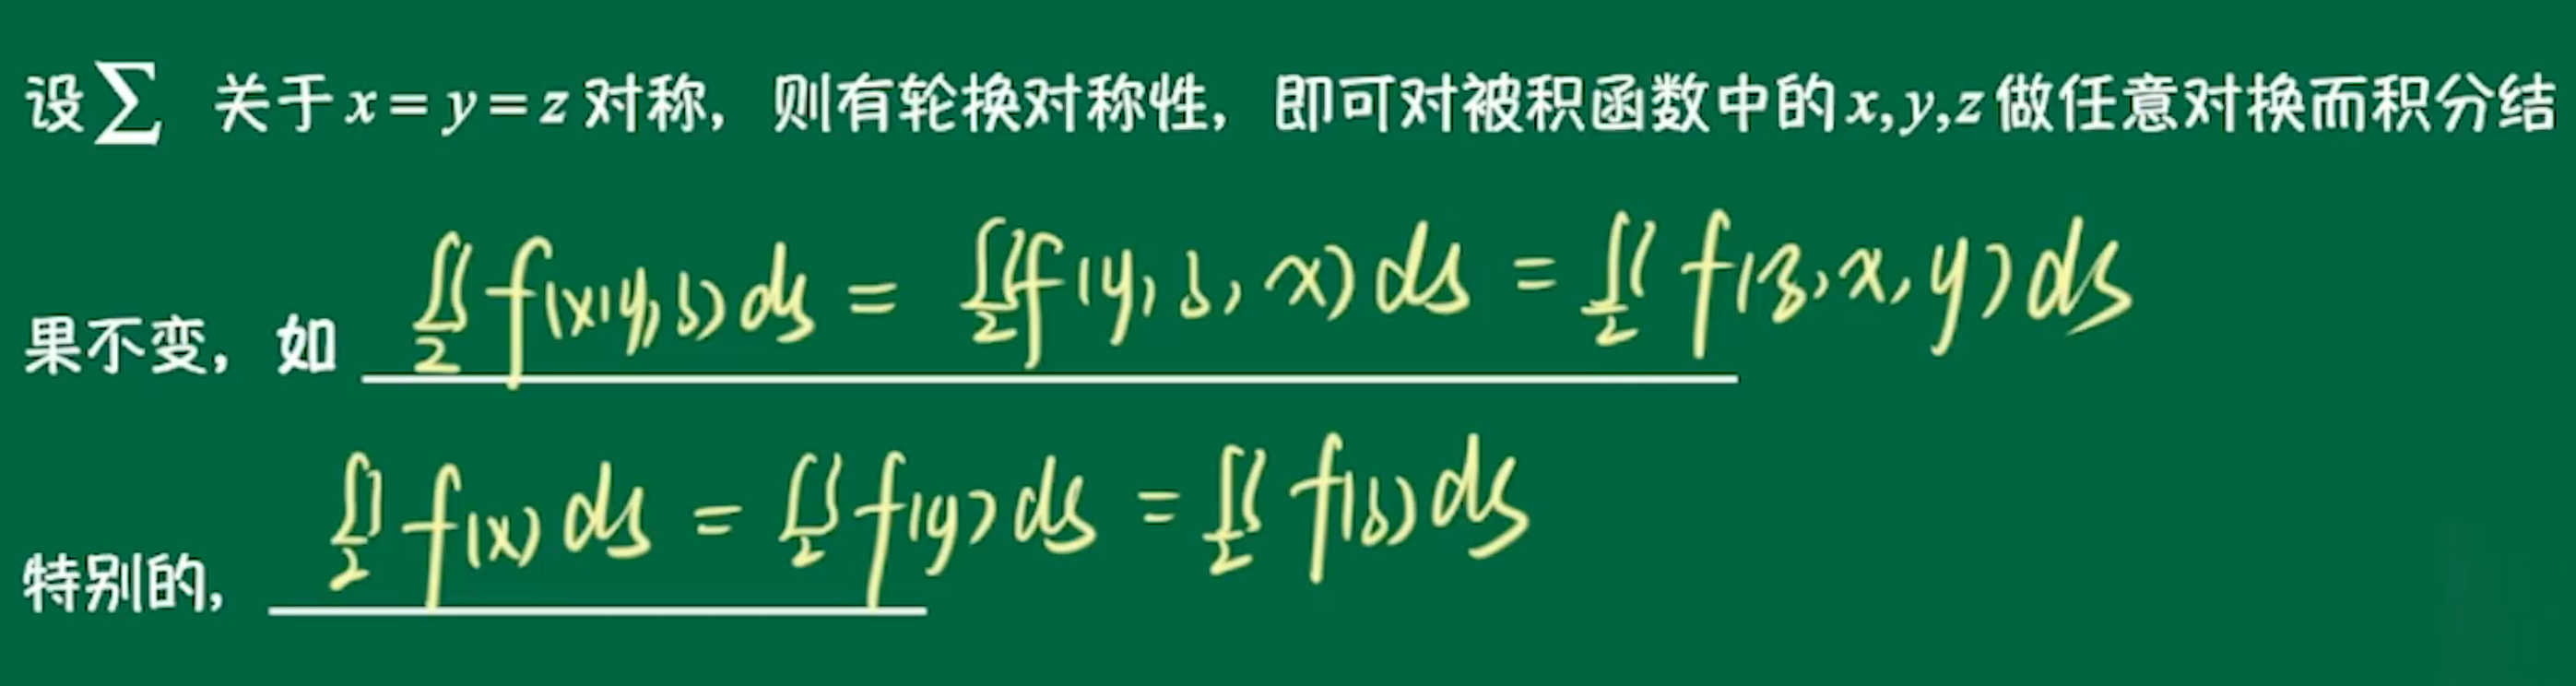 设∑ 关于x=y=z对称，则有轮换对称性，即可对被积函数中的x,y,z做任意对换而积分结
果不变，如 ∬_Σ f(x,y,z)ds = ∬_Σ f(y,z,x)ds = ∬_Σ f(z,x,y)ds
特别的， ∬_Σ f(x)ds = ∬_Σ f(y)ds = ∬_Σ f(z)ds